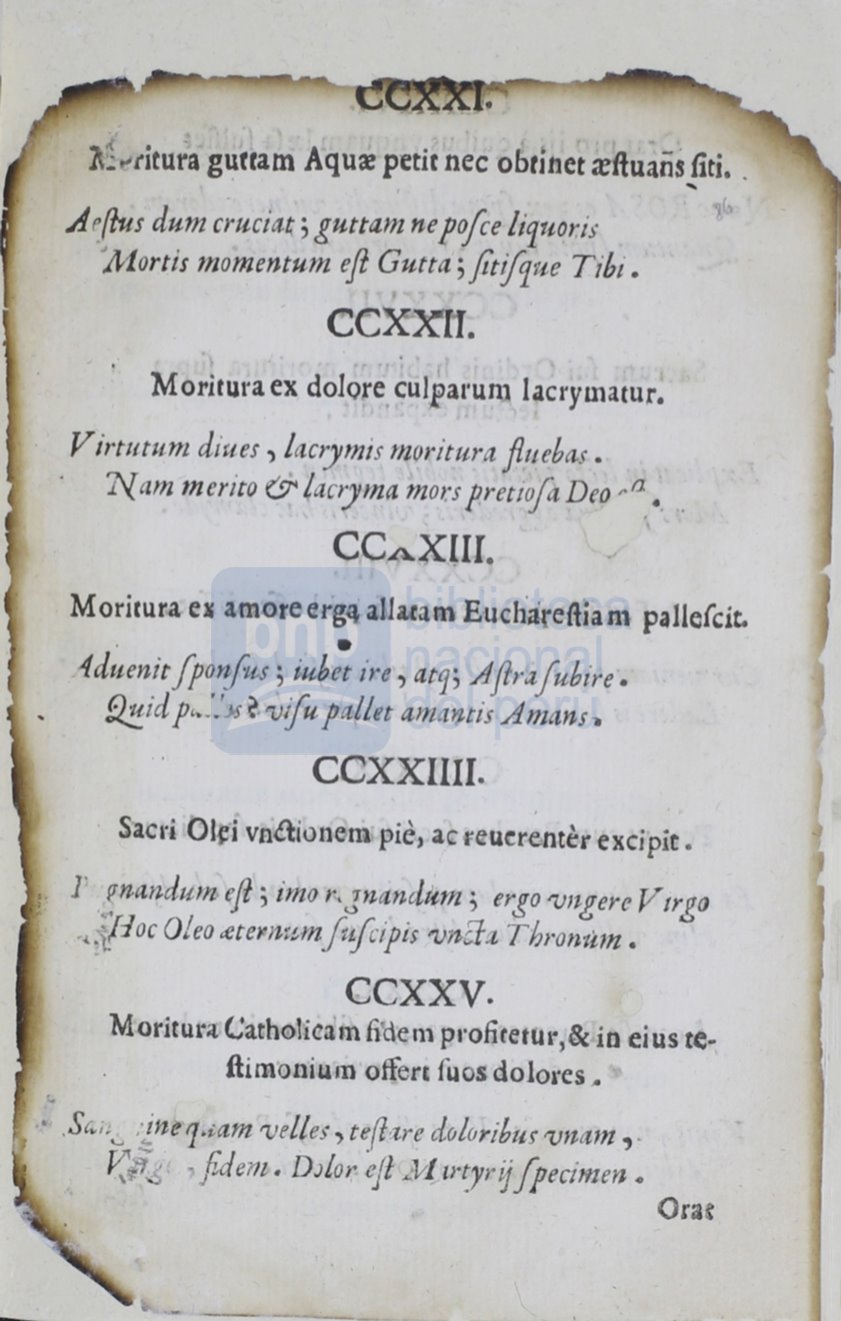 CCXXI.
guttam Aquæ petit nec obtinet æſtuañs ſiti.
86
Aeſtus dum cruciat; guttam ne poſce liquoris
Mortis momentum eſt Gutta; ſitiſque Tibi.
CCXXII.
Moritura ex dolore culparum lacrymatur.
Virtutum diues, lacrymis moritura fluebas.
Nam merito & lacryma mors pretioſa Deo
CCXXIII.
Moritura ex amore erga allatam Euchareſtiam palleſcit.
Aduenit ſponſus; iubet ire, atq; Aſtra ſubire.
Quid viſu pallet amantis Amans.
CCXXIIII.
Sacri Olei vnctionem piè, ac reuerentèr excipit.
eſt; imo ; ergo vngere Virgo
Hoc Oleo æternum ſuſcipis vncta Thronum.
CCXXV.
Moritura Catholicam fidem profitetur, & in eius te-
ſtimonium offert ſuos dolores.
quam velles, teſtare doloribus vnam,
fidem. Dolor eſt Martyrij ſpecimen.
Orat
bnp biblioteca
nacional
del perú